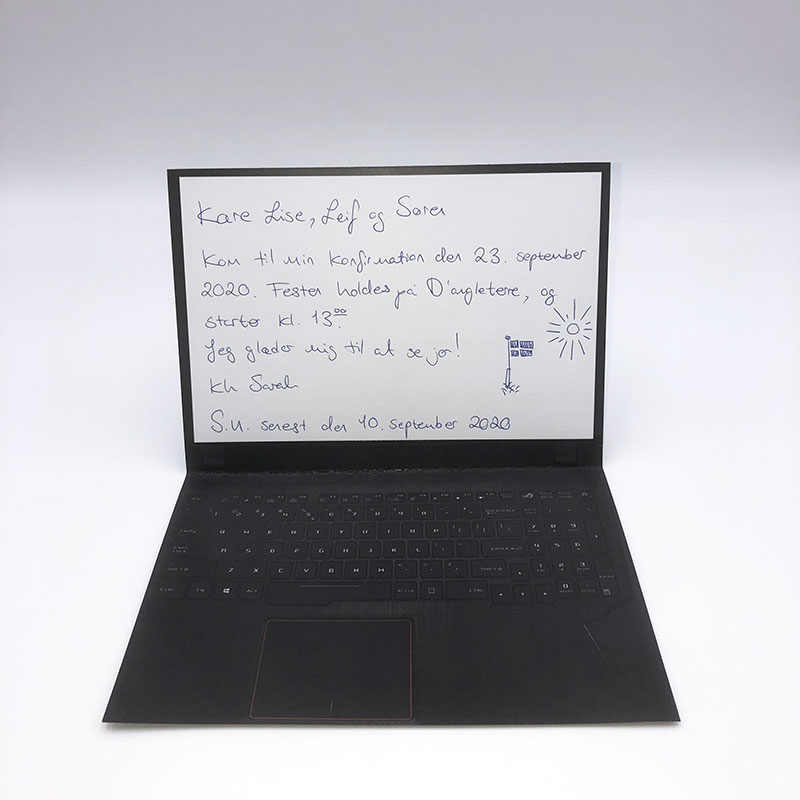 Kære Lise, Leif og Søren
Kom til min konfirmation den 23. september
2020. Festen holdes på D'angleterre, og
starter kl. 13⁰⁰.
Jeg glæder mig til at se jer!
Kh Sarah
S.u. senest den 10. september 2020